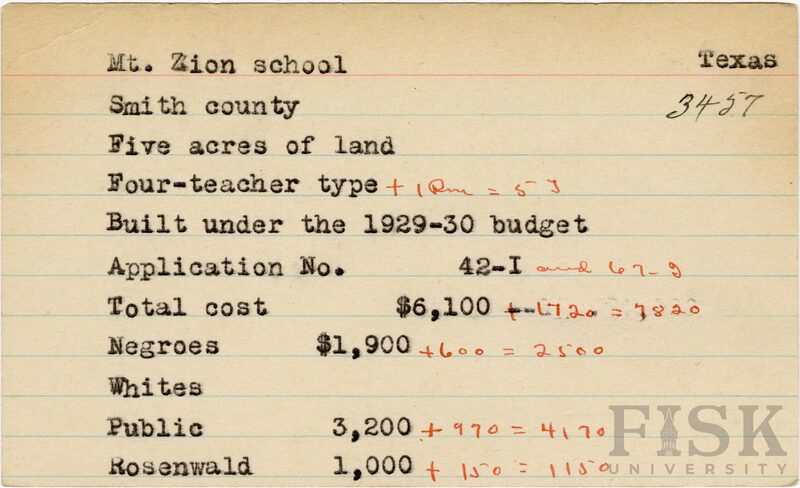 Mt. Zion school Texas
Smith county 3457
Five acres of land
Four-teacher type + 1 Rm = 5 J
Built under the 1929-30 budget
Application No. 42-I and 67-J
Total cost $6,100 + 1720 = 7820
Negroes $1,900 + 600 = 2500
Whites
Public 3,200 + 970 = 4170
Rosenwald 1,000 + 150 = 1150
FISK
UNIVERSITY